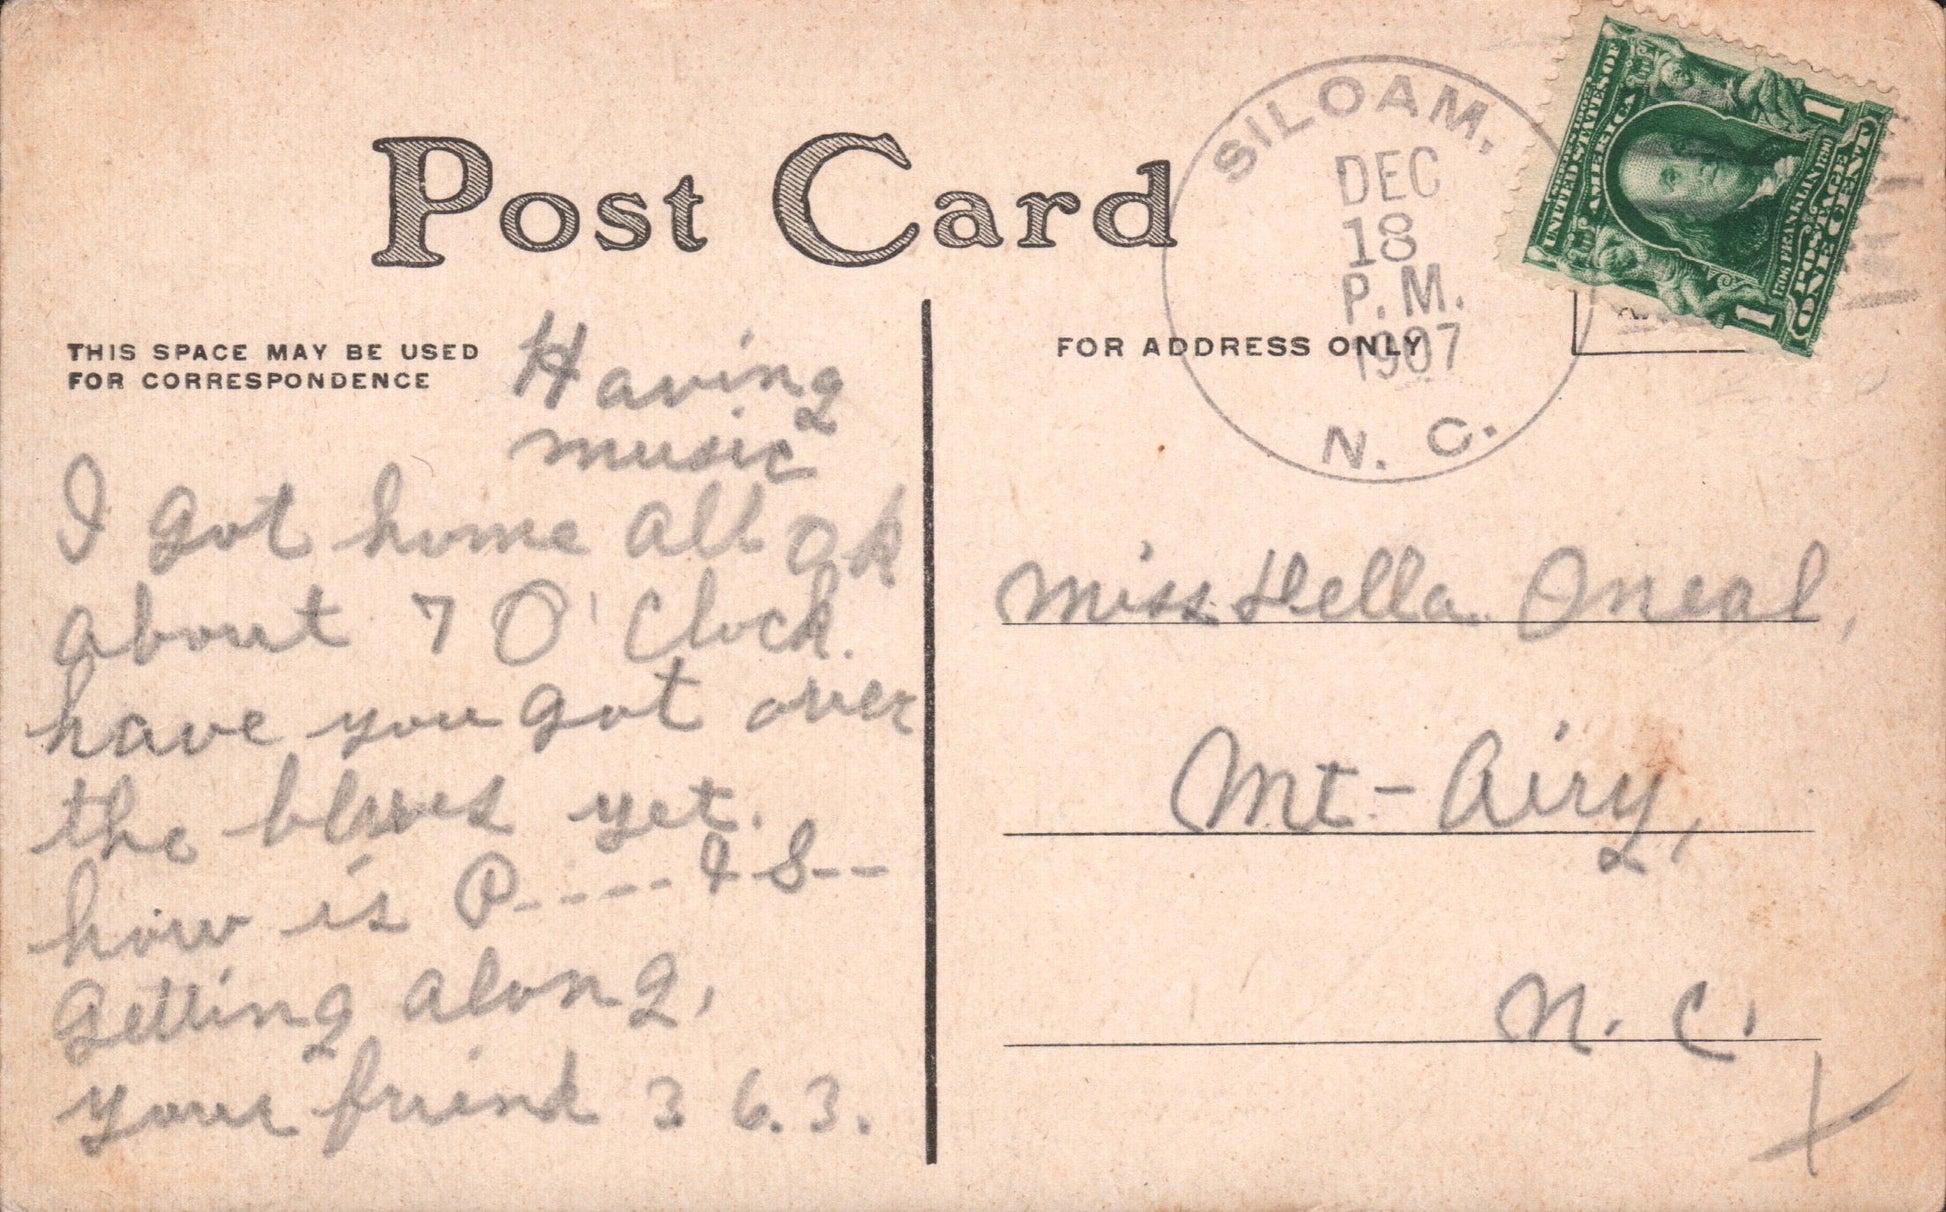 Post Card
THIS SPACE MAY BE USED
FOR CORRESPONDENCE
Having
music
I got home all ok
about 7 O'Clock.
have you got over
the blues yet.
how is P---- & S--
getting along,
your friend 3 6.3.
FOR ADDRESS ONLY
SILOAM,
DEC
18
P.M.
1907
N. C.
UNITED STATES OF
AMERICA
1706 FRANKLIN 1790
POSTAGE
ONE CENT
1
1
Miss Hella Oneal,
Mt-Airy,
N. C.
X